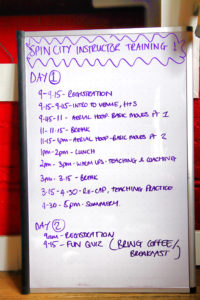 SPIN CITY INSTRUCTOR TRAINING!
DAY 1
9-9.15 - REGISTRATION
9.15-9.45 - INTRO TO VENUE, H+S
9.45-11 - AERIAL HOOP BASIC MOVES PT 1
11-11.15 - BREAK
11.15-1pm - AERIAL HOOP BASIC MOVES PT 2
1pm-2pm - LUNCH
2pm-3pm - WARM UPS - TEACHING & COACHING
3pm-3.15 - BREAK
3.15-4.30 - RE-CAP, TEACHING PRACTICE
4.30-5pm - SUMMARY
DAY 2
9am - REGISTRATION
9.15 - FUN QUIZ (BRING COFFEE/
BREAKFAST)